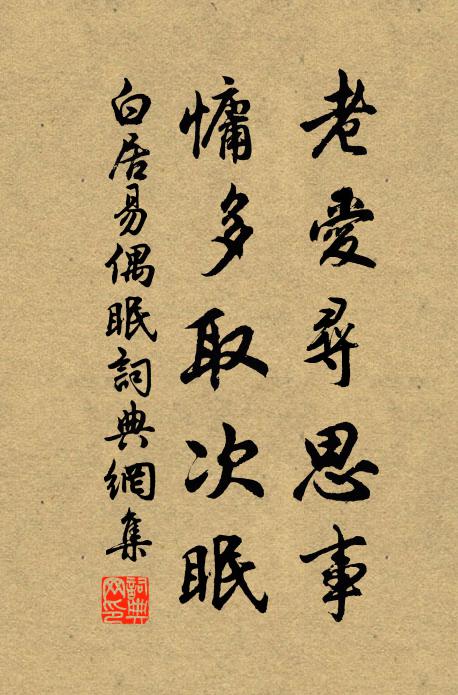 老愛尋思事
慵多取次眠
白居易偶眠詞典網集
詞典网印